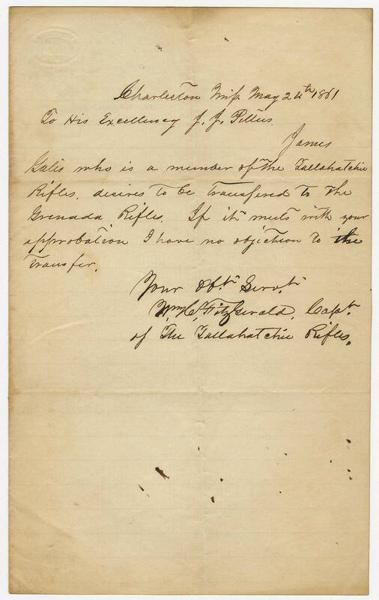 Charleston Miss May 24th 1861
To His Excellency J. J. Pettus.
James
Gales who is a member of the Tallahatchie
Rifles, desires to be transfered to the
Grenada Rifles. If it meets with your
approbation I have no objection to the
transfer.
Your Obt. Servt.
Wm. C. FitzGerald, Capt.
of The Tallahatchie Rifles.